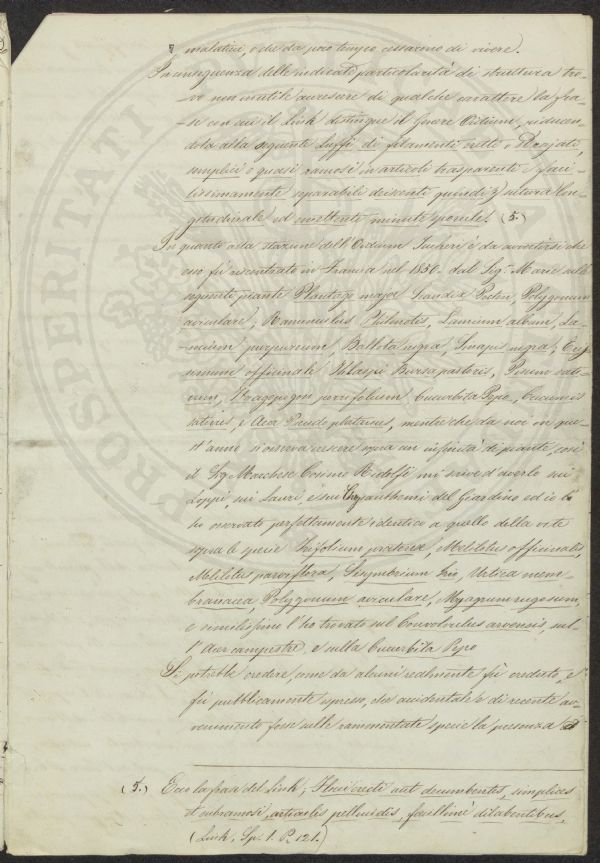 malatici, o che da poco tempo cessarono di vivere).
In conseguenza delle indicate particolarità di struttura tro-
-vo non inutile accrescere di qualche carattere la fra-
-se con cui il Link distingue il Genere Oidium, riducen-
dola alla seguente Tuffi di filamenti retti o Prostrati,
semplici o quasi ramosi in articoli trasparenti e faci-
lissimamente separabili deiscenti quindi sutura lon-
gitudinale ed emettenti minute sporule. (5.)
In quanto alla stazione dell'Oidium Tuckeri è da avvertirsi che
esso fù riscontrato in Francia nel 1850. dal Sig.r Marie sulle
seguenti piante Plantago major Scandix Pecten, Polygonum
aviculare, Ranunculus Philonotis, Lamium album, La-
-mium purpureum, Ballota nigra, Sinapis nigra, Erysi-
mum officinale Thlaspi Bursa pastoris, Pisum sati-
vum, Tragopogon porrifolium Cucurbita Pepo, Cucumis
sativus, e Acer Pseudo platanus, mentre che da noi in que-
st'anno si osserva essere sopra un infinità di piante, così
il Sig. Marchese Cosimo Ridolfi mi scrive d'averlo sui
Loppi, sui Lauri, e sui Crysanthemi del Giardino ed io l'
ho osservato perfettamente identico a quello della vite
sopra le specie Trifolium pratense, Melilotus officinalis,
Melilotus parviflora, Sisymbrium Irio, Urtica mem-
branacea, Polygonum aviculare, Myagrum rugosum,
e similissimo l'ho trovato sul Convolvulus arvensis, sul-
l'Acer campestre, e sulla Cucurbita Pepo
Si potrebbe credere come da alcuni realmente fù creduto, e
fù pubblicamente espresso, che accidentale e di recente av-
venimento fosse sulle rammentate specie la presenza d
(5.) Ecco la frase del Link; Flocci erecti aut decumbentes, simplices
et subramosi, articulis pellucidis, facillime dilabentibus,
(Link. Sp. 1. P. 121.)
PROSPERITATI